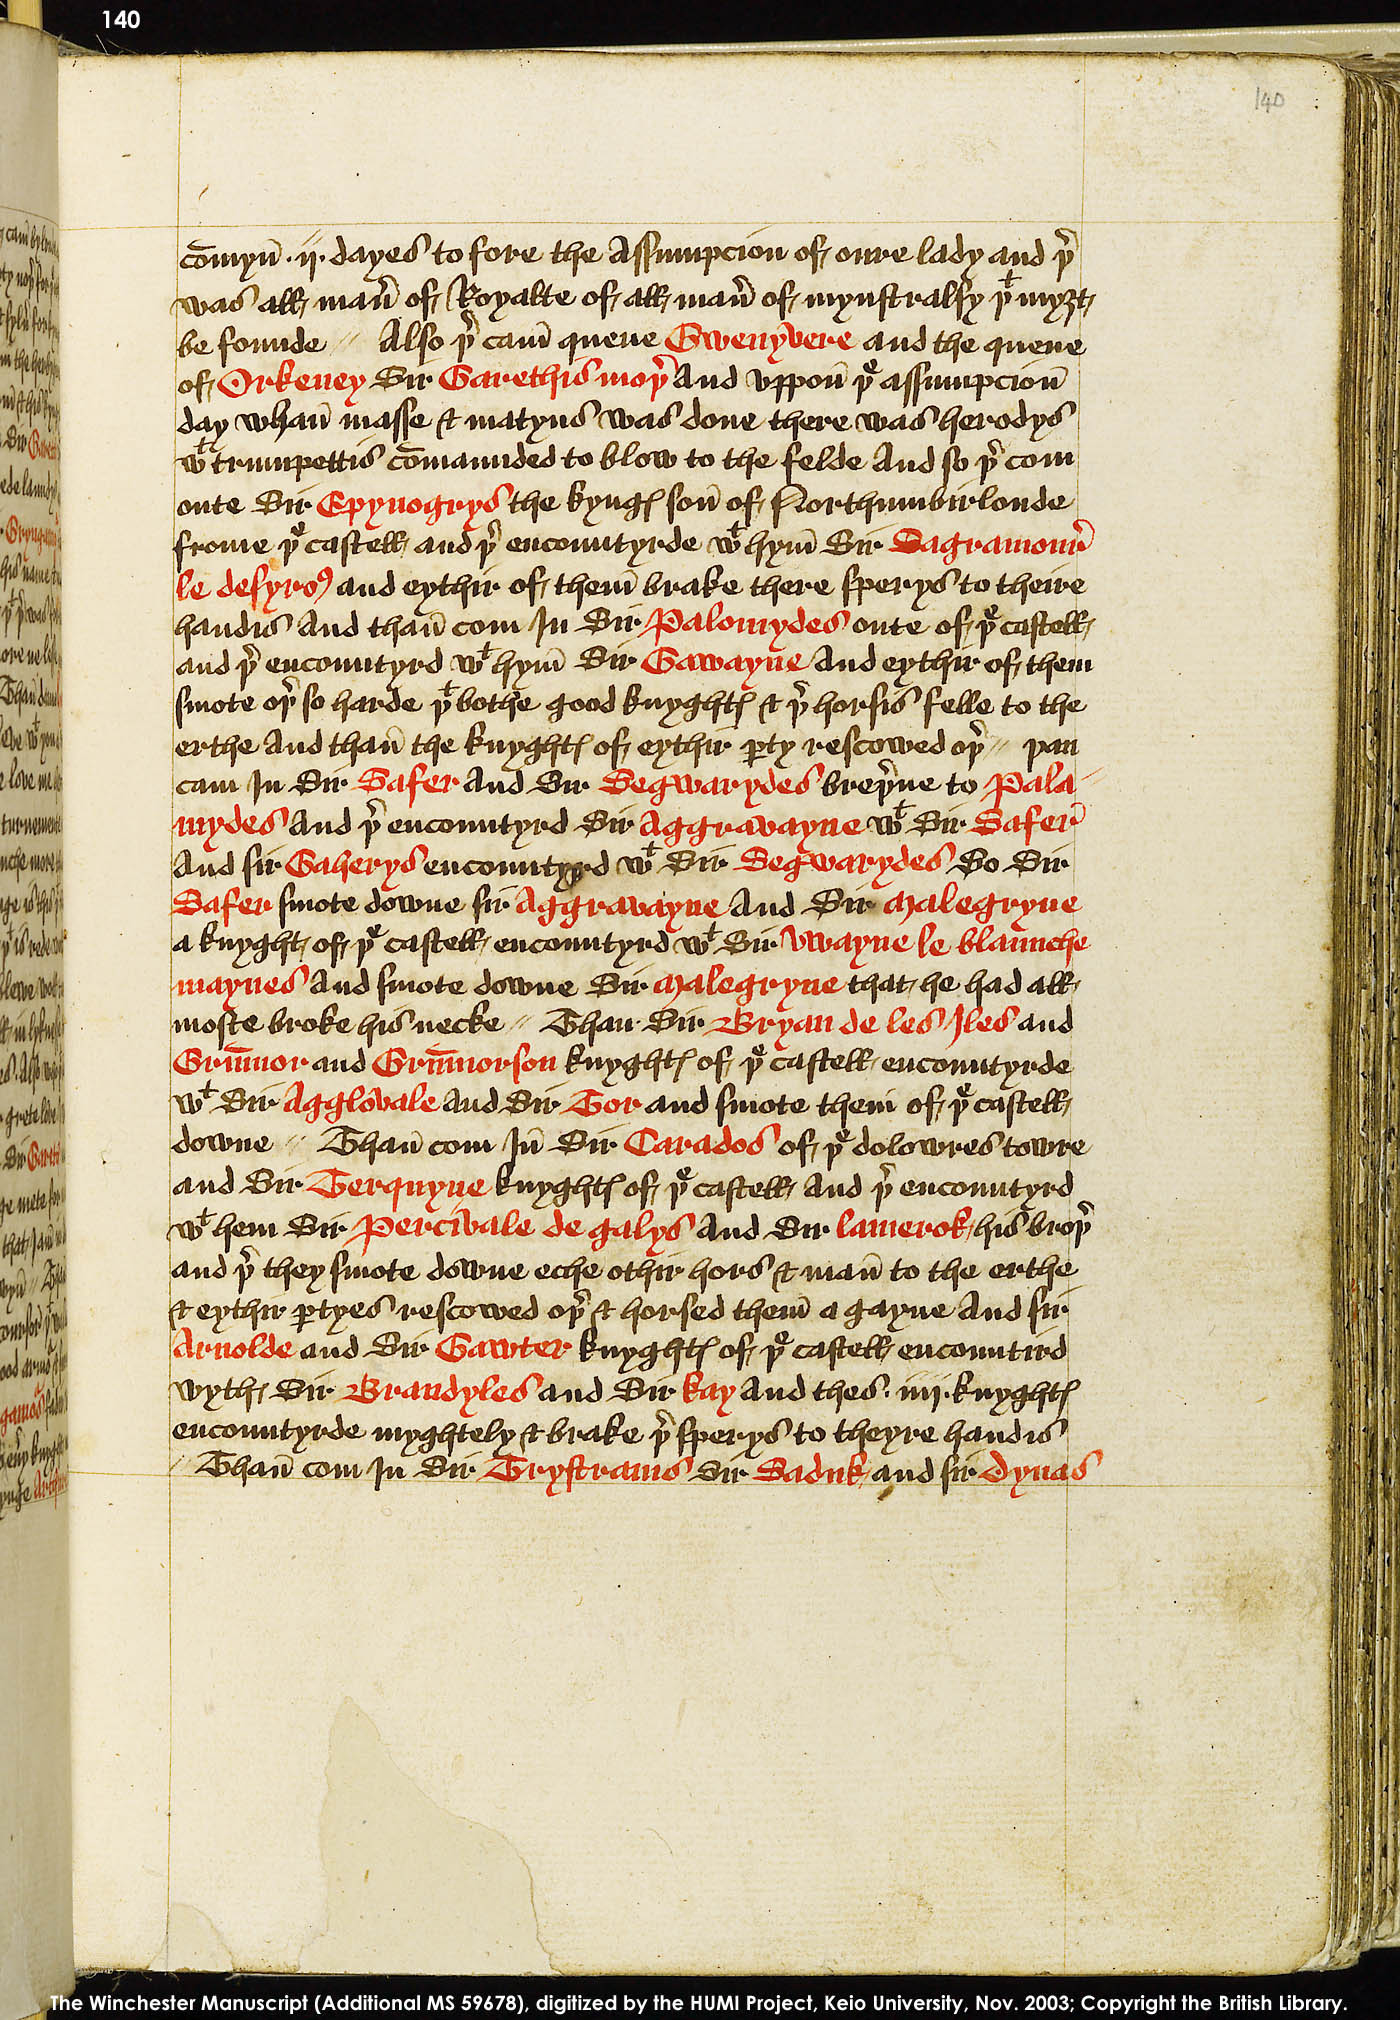 140
140
comyn̄ · ij · dayes to fore the Assumpcion of oure lady and þr̄
was all man̄ of Royalte of all man̄ of mynstralsy þᵗ myȝt
be founde // Also þr̄ cam̄ quene Gwenyvere and the quene
of Orkeney Sir Garethis moþr̄ And vppon̄ þᵉ assumpcion̄
day whan̄ masse & matyns was done there was herodys
wᵗ trumpettis com̄aunded to blow to the felde And so þr̄ com
oute Sir Epynogrys the kyngꝭ son̄ of Northumbirlonde
frome þᵉ castell and þr̄ encountyrde wᵗ hym̄ Sir Sagramour̄
le desyrꝰ and eythir of them̄ brake there sperys to theire
handis And than̄ com In Sir Palomydes oute of þᵉ castell
and þr̄ encountyrd wᵗ hym̄ Sir Gawayne And eythir of them
smote oþr̄ so harde þᵗ bothe good knyghtꝭ & þr̄ horsis felle to the
erthe And than̄ the knyghtꝭ of eythir ꝑty rescowed oþr̄ // þan
cam In Sir Safer And Sir Segwarydes breþr̄ne to Pala
mydes And þr̄ encountyrd Sir Aggravayne wᵗ Sir Safer̄
And sir Gaherys encountyrd wᵗ Sir Segwarydes So Sir
Safer smote downe sir Aggravayne And Sir Malegryne
a knyght of þᵉ castell encountyrd wᵗ Sir Vwayne le blaunche
maynes And smote downe Sir Malegryne that he had all
moste broke his necke // Than Sir Bryan de les Iles and
Grum̄or and Grum̄orson knyghtꝭ of þᵉ castell encountyrde
wᵗ Sir Agglovale And Sir Tor and smote them of þᵉ castell
downe // Than̄ com In̄ Sir Carados of þᵉ dolowres towre
and Sir Terquyne knyghtꝭ of þᵉ castell And þr̄ encountyrd
wᵗ hem Sir Percivale de galys And Sir lamerok his broþr̄
and þr̄ they smote downe eche othir hors & man̄ to the erthe
& eythir ꝑtyes rescowed oþr̄ & horsed them̄ a gayne And sir
Arnolde and Sir Gawter knyghtꝭ of þᵉ castell encountird
wyth Sir Brandyles and Sir kay And thes · iiij · knyghtꝭ
encountyrde myghtely & brake þr̄ sperys to theyre handis
// Than̄ com In Sir Trystrams Sir Saduk and sir Dynas
The Winchester Manuscript (Additional MS 59678), digitized by the HUMI Project, Keio University, Nov. 2003; Copyright the British Library.